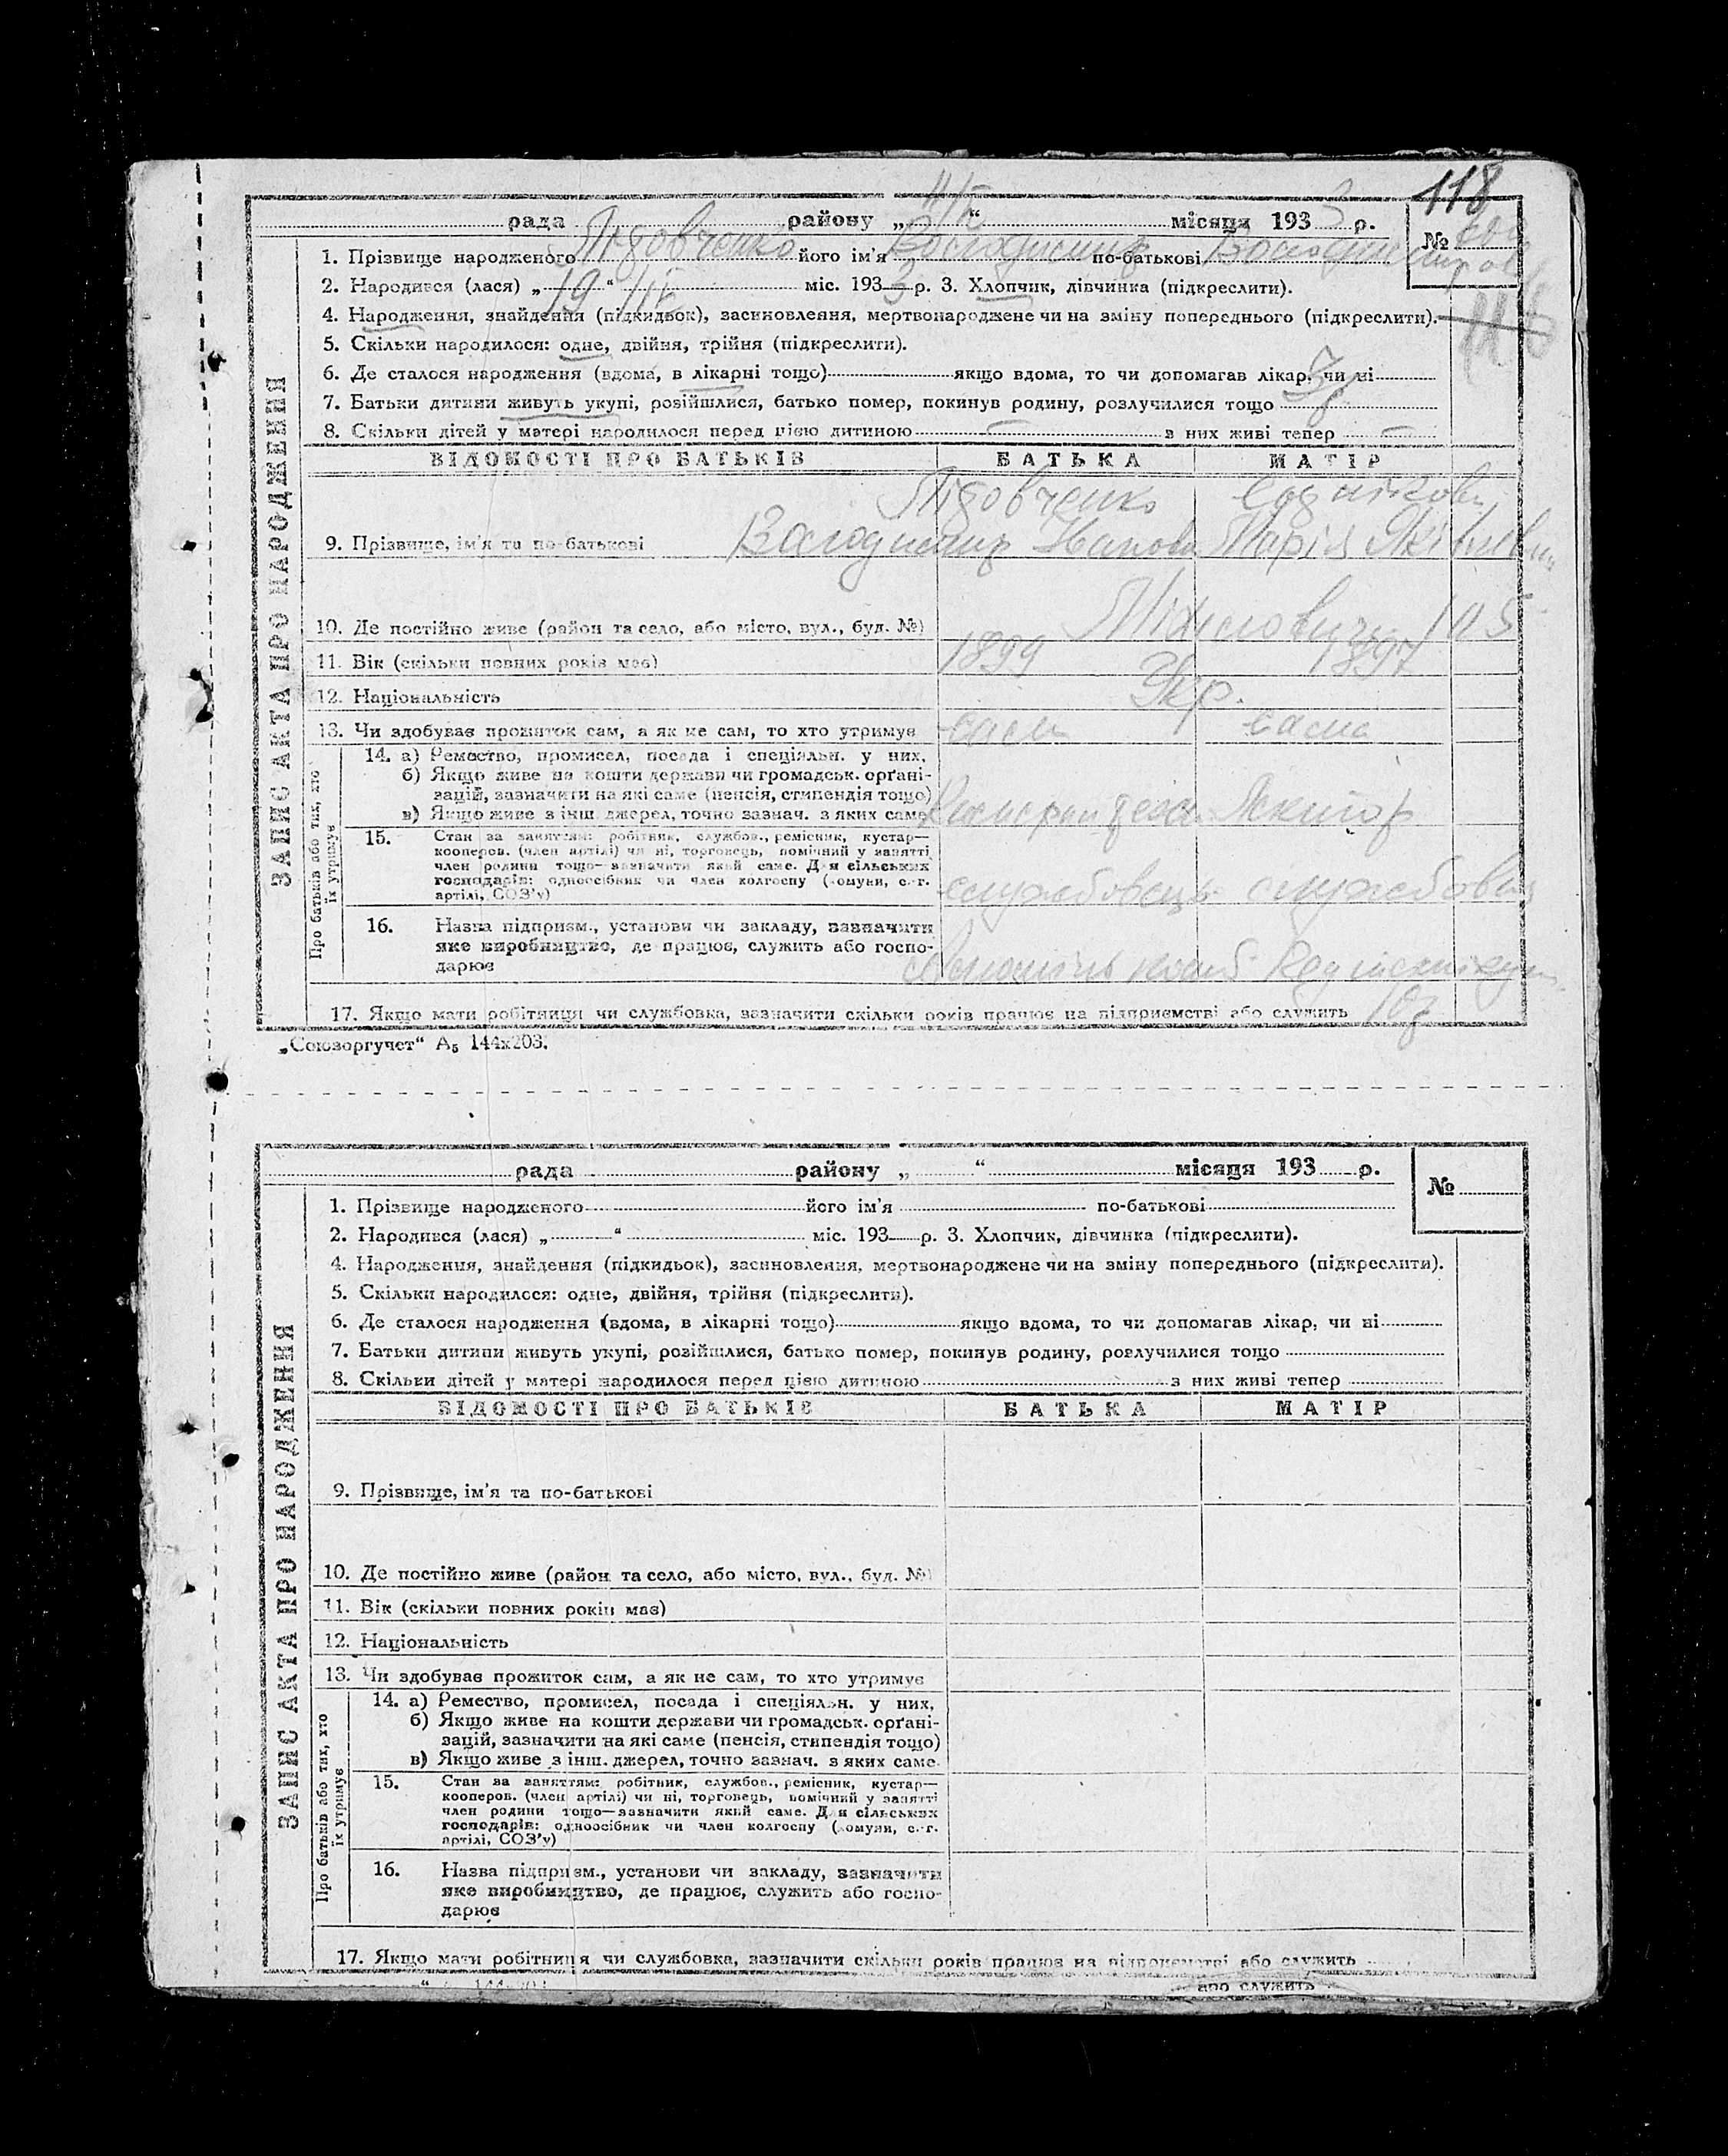 118
рада района „ “ місяця 1933 р. №
1. Прізвище народженого його ім'я Володимир по-батькові
2. Народився (лася) „19“ міс. 1933 р. 3. Хлопчик, дівчинка (підкреслити).
4. Народження, знайдення (підкидьок), засиновлення, мертвонароджене чи на зміну попереднього (підкреслити).
5. Скільки народилося: одне, двійня, трійня (підкреслити).
6. Де сталося народження (вдома, в лікарні тощо) якщо вдома, то чи допомагав лікар, чи ні
7. Батьки дитини живуть укупі, розійшлися, батько помер, покинув родину, розлучилися тощо
8. Скільки дітей у матері народилося перед цією дитиною — з них живі тепер —
ЗАПИС АКТА ПРО НАРОДЖЕННЯ
ВІДОМОСТІ ПРО БАТЬКІВ БАТЬКА МАТІР
9. Прізвище, ім'я та по-батькові Володимир Марія
10. Де постійно живе (район та село, або місто, вул., буд. №)
11. Вік (скільки повних років має) 1899 1897
12. Національність Укр.
13. Чи здобуває прожиток сам, а як не сам, то хто утримує сам сама
Про батьків або тих, хто їх утримує
14. а) Ремество, промисел, посада і спеціяльн. у них,
б) Якщо живе на кошти держави чи громадськ. орґані-
зацій, зазначити на які саме (пенсія, стипендія тощо)
в) Якщо живе з інш. джерел, точно зазнач. з яких саме
15. Стан за заняттям: робітник, службов., ремісник, кустар—
кооперов. (член артілі) чи ні, торговець, помічний у занятті
член родини тощо—зазначити який саме. Для сільських
господарів: одноосібник чи член колгоспу (комуни, с.-г.
артілі, СОЗ'у)
службовець службовец
16. Назва підприєм., установи чи закладу, зазначити
яке виробництво, де працює, служить або госпо-
дарює
17. Якщо мати робітниця чи службовка, зазначити скільки років працює на підприємстві або служить
„Союзоргучет“ А₅ 144х203.
рада району „ “ місяця 193 р. №
1. Прізвище народженого його ім'я по-батькові
2. Народився (лася) „ “ міс. 193 р. 3. Хлопчик, дівчинка (підкреслити).
4. Народження, знайдення (підкидьок), засиновлення, мертвонароджене чи на зміну попереднього (підкреслити).
5. Скільки народилося: одне, двійня, трійня (підкреслити).
6. Де сталося народження (вдома, в лікарні тощо) якщо вдома, то чи допомагав лікар, чи ні
7. Батьки дитини живуть укупі, розійшлися, батько помер, покинув родину, розлучилися тощо
8. Скільки дітей у матері народилося перед цією дитиною з них живі тепер
ЗАПИС АКТА ПРО НАРОДЖЕННЯ
ВІДОМОСТІ ПРО БАТЬКІВ БАТЬКА МАТІР
9. Прізвище, ім'я та по-батькові
10. Де постійно живе (район та село, або місто, вул., буд. №)
11. Вік (скільки повних років має)
12. Національність
13. Чи здобуває прожиток сам, а як не сам, то хто утримує
Про батьків або тих, хто їх утримує
14. а) Ремество, промисел, посада і спеціяльн. у них,
б) Якщо живе на кошти держави чи громадськ. орґані-
зацій, зазначити на які саме (пенсія, стипендія тощо)
в) Якщо живе з інш. джерел, точно зазнач. з яких саме.
15. Стан за заняттям: робітник, службов., ремісник, кустар—
кооперов. (член артілі) чи ні, торговець, помічний у занятті
член родини тощо—зазначити який саме. Для сільських
господарів: одноосібник чи член колгоспу (комуни, с.-г.
артілі, СОЗ'у)
16. Назва підприєм., установи чи закладу, зазначити
яке виробництво, де працює, служить або госпо-
дарює
17. Якщо мати робітниця чи службовка, зазначити скільки років працює на підприємстві або служить
або служить